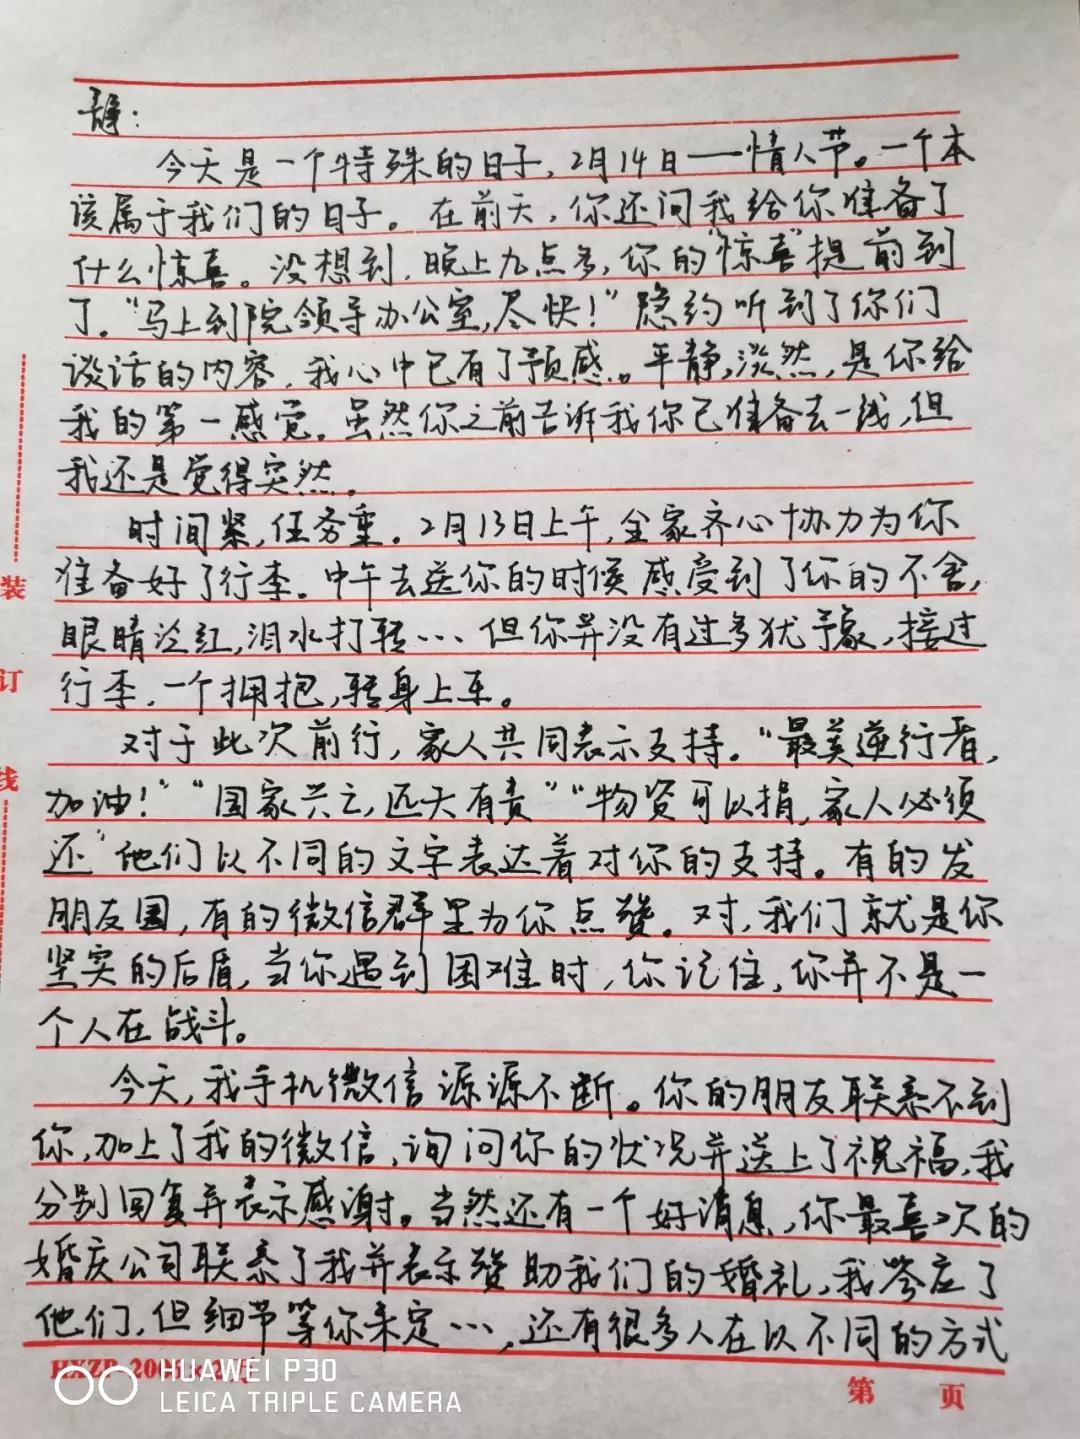 静：
今天是一个特殊的日子，2月14日——情人节。一个本
该属于我们的日子。在前天，你还问我给你准备了
什么惊喜。没想到，晚上九点多，你的“惊喜”提前到
了。“马上到院领导办公室，尽快！”隐约听到了你们
谈话的内容，我心中已有了预感。平静，淡然，是你给
我的第一感觉。虽然你之前告诉我你已准备去一线，但
我还是觉得突然。
时间紧，任务重。2月13日上午，全家齐心协力为你
准备好了行李。中午去送你的时候感受到了你的不舍，
眼睛泛红，泪水打转……但你并没有过多犹豫，接过
行李，一个拥抱，转身上车。
对于此次前行，家人共同表示支持。“最美逆行者，
加油！”“国家兴亡，匹夫有责”“物资可以捐，家人必须
还”他们以不同的文字表达着对你的支持。有的发
朋友圈，有的微信群里为你点赞。对，我们就是你
坚实的后盾，当你遇到困难时，你记住，你并不是一
个人在战斗。
今天，我手机微信源源不断。你的朋友联系不到
你，加上了我的微信，询问你的状况并送上了祝福，我
分别回复并表示感谢。当然还有一个好消息，你最喜欢的
婚庆公司联系了我并表示赞助我们的婚礼，我答应了
他们，但细节等你来定……，还有很多人在以不同的方式
装
订
线
第 页
HUAWEI P30
LEICA TRIPLE CAMERA